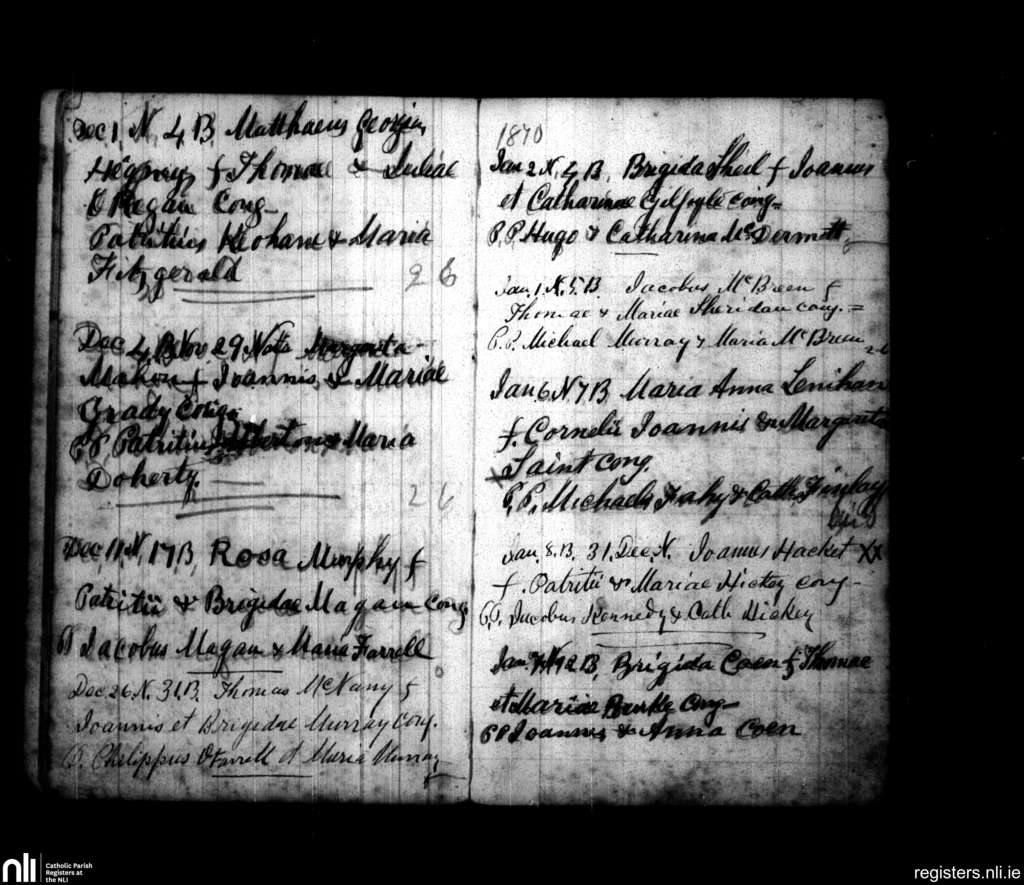 Dec 1, N, 4, B, Matthaeus Georgius
Hegney, f Thomae & Juliae
O Regan Cong-
Patritius Keohane & Maria
Fitzgerald 26
Dec 4, B, Nov 29 Nata Margarita
Mahon f Joannis, & Mariae
Grady Cong.
P,P Patritius & Maria
Doherty. 26
Dec, 11, N, 17 B, Rosa Murphy f
Patritii & Brigidae Magan Cong
P Jacobus Magan & Maria Farrell
Dec. 26. N. 31. B. Thomas McNamy f
Joannis et Brigidae Murray Cong.
P. Philippus O Farrell et Maria Murray
1870
Jan 2 N, 4, B, Brigida Sheil f Joannis
et Catharinae Gilfoyle Cong-
P, P, Hugo & Catharina McDermott,
Jan. 1. N. 5. B. Jacobus McBreen f
Thomae & Mariae Sheridan cong. =
P. P. Michael Murray & Maria McBreen
Jan, 6 N 7 B Maria Anna Lenihan
f. Cornelii Joannis & Margarita
Saint cong.
P, P, Michaels Fahy & Cath Finlay
Jan. 8. B. 31. Dec. N. Joannes Hacket XX
f. Patritii & Mariae Hickey cong-
P,P, Jacobus Kennedy & Cath Hickey
Jan, N 12 B, Brigida Coen f Thomae
et Mariae Burke Cong-
P P Joannis & Anna Coen
nli
Catholic Parish
Registers at
the NLI
registers.nli.ie